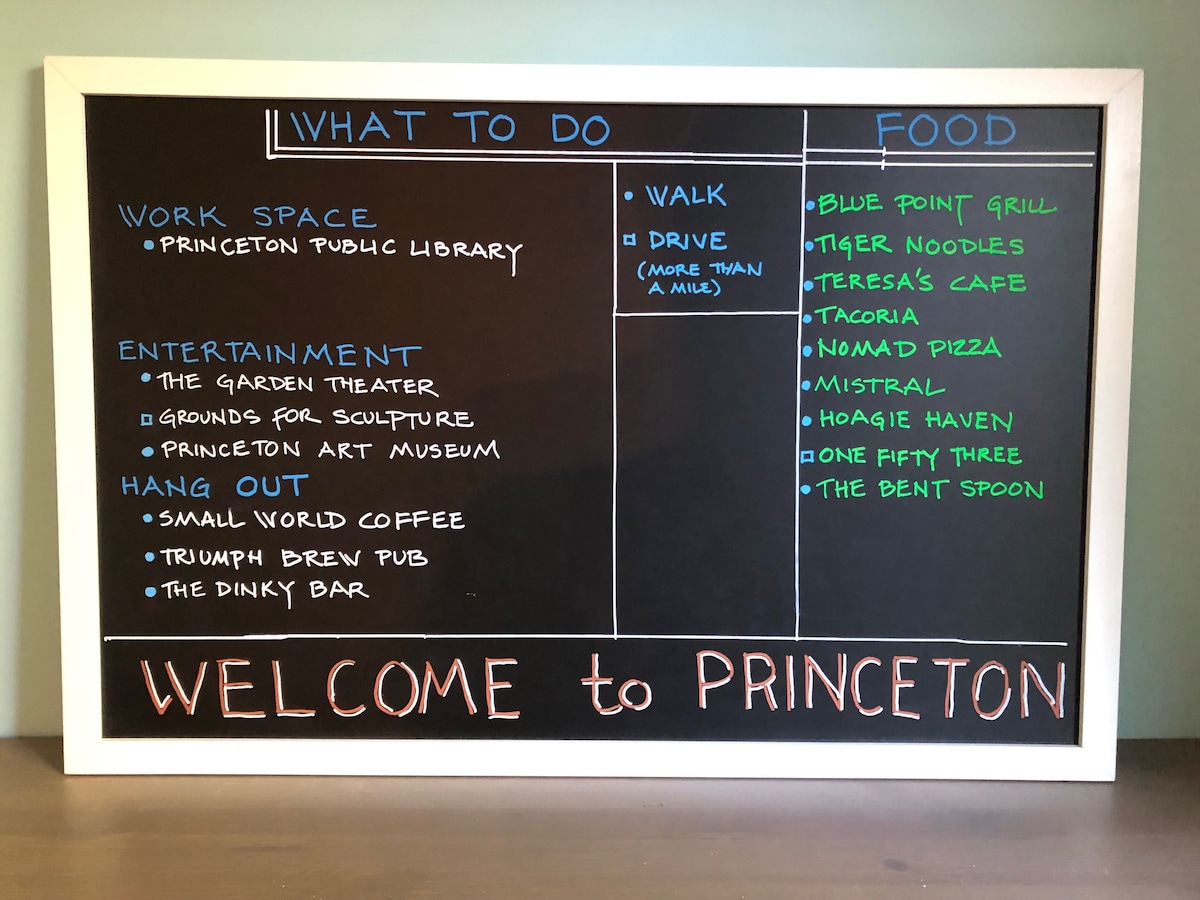 WHAT TO DO
WORK SPACE
• PRINCETON PUBLIC LIBRARY
ENTERTAINMENT
• THE GARDEN THEATER
▫ GROUNDS FOR SCULPTURE
• PRINCETON ART MUSEUM
HANG OUT
• SMALL WORLD COFFEE
• TRIUMPH BREW PUB
• THE DINKY BAR
• WALK
▫ DRIVE
(MORE THAN
A MILE)
FOOD
• BLUE POINT GRILL
• TIGER NOODLES
• TERESA'S CAFE
• TACORIA
• NOMAD PIZZA
• MISTRAL
• HOAGIE HAVEN
▫ ONE FIFTY THREE
• THE BENT SPOON
WELCOME to PRINCETON